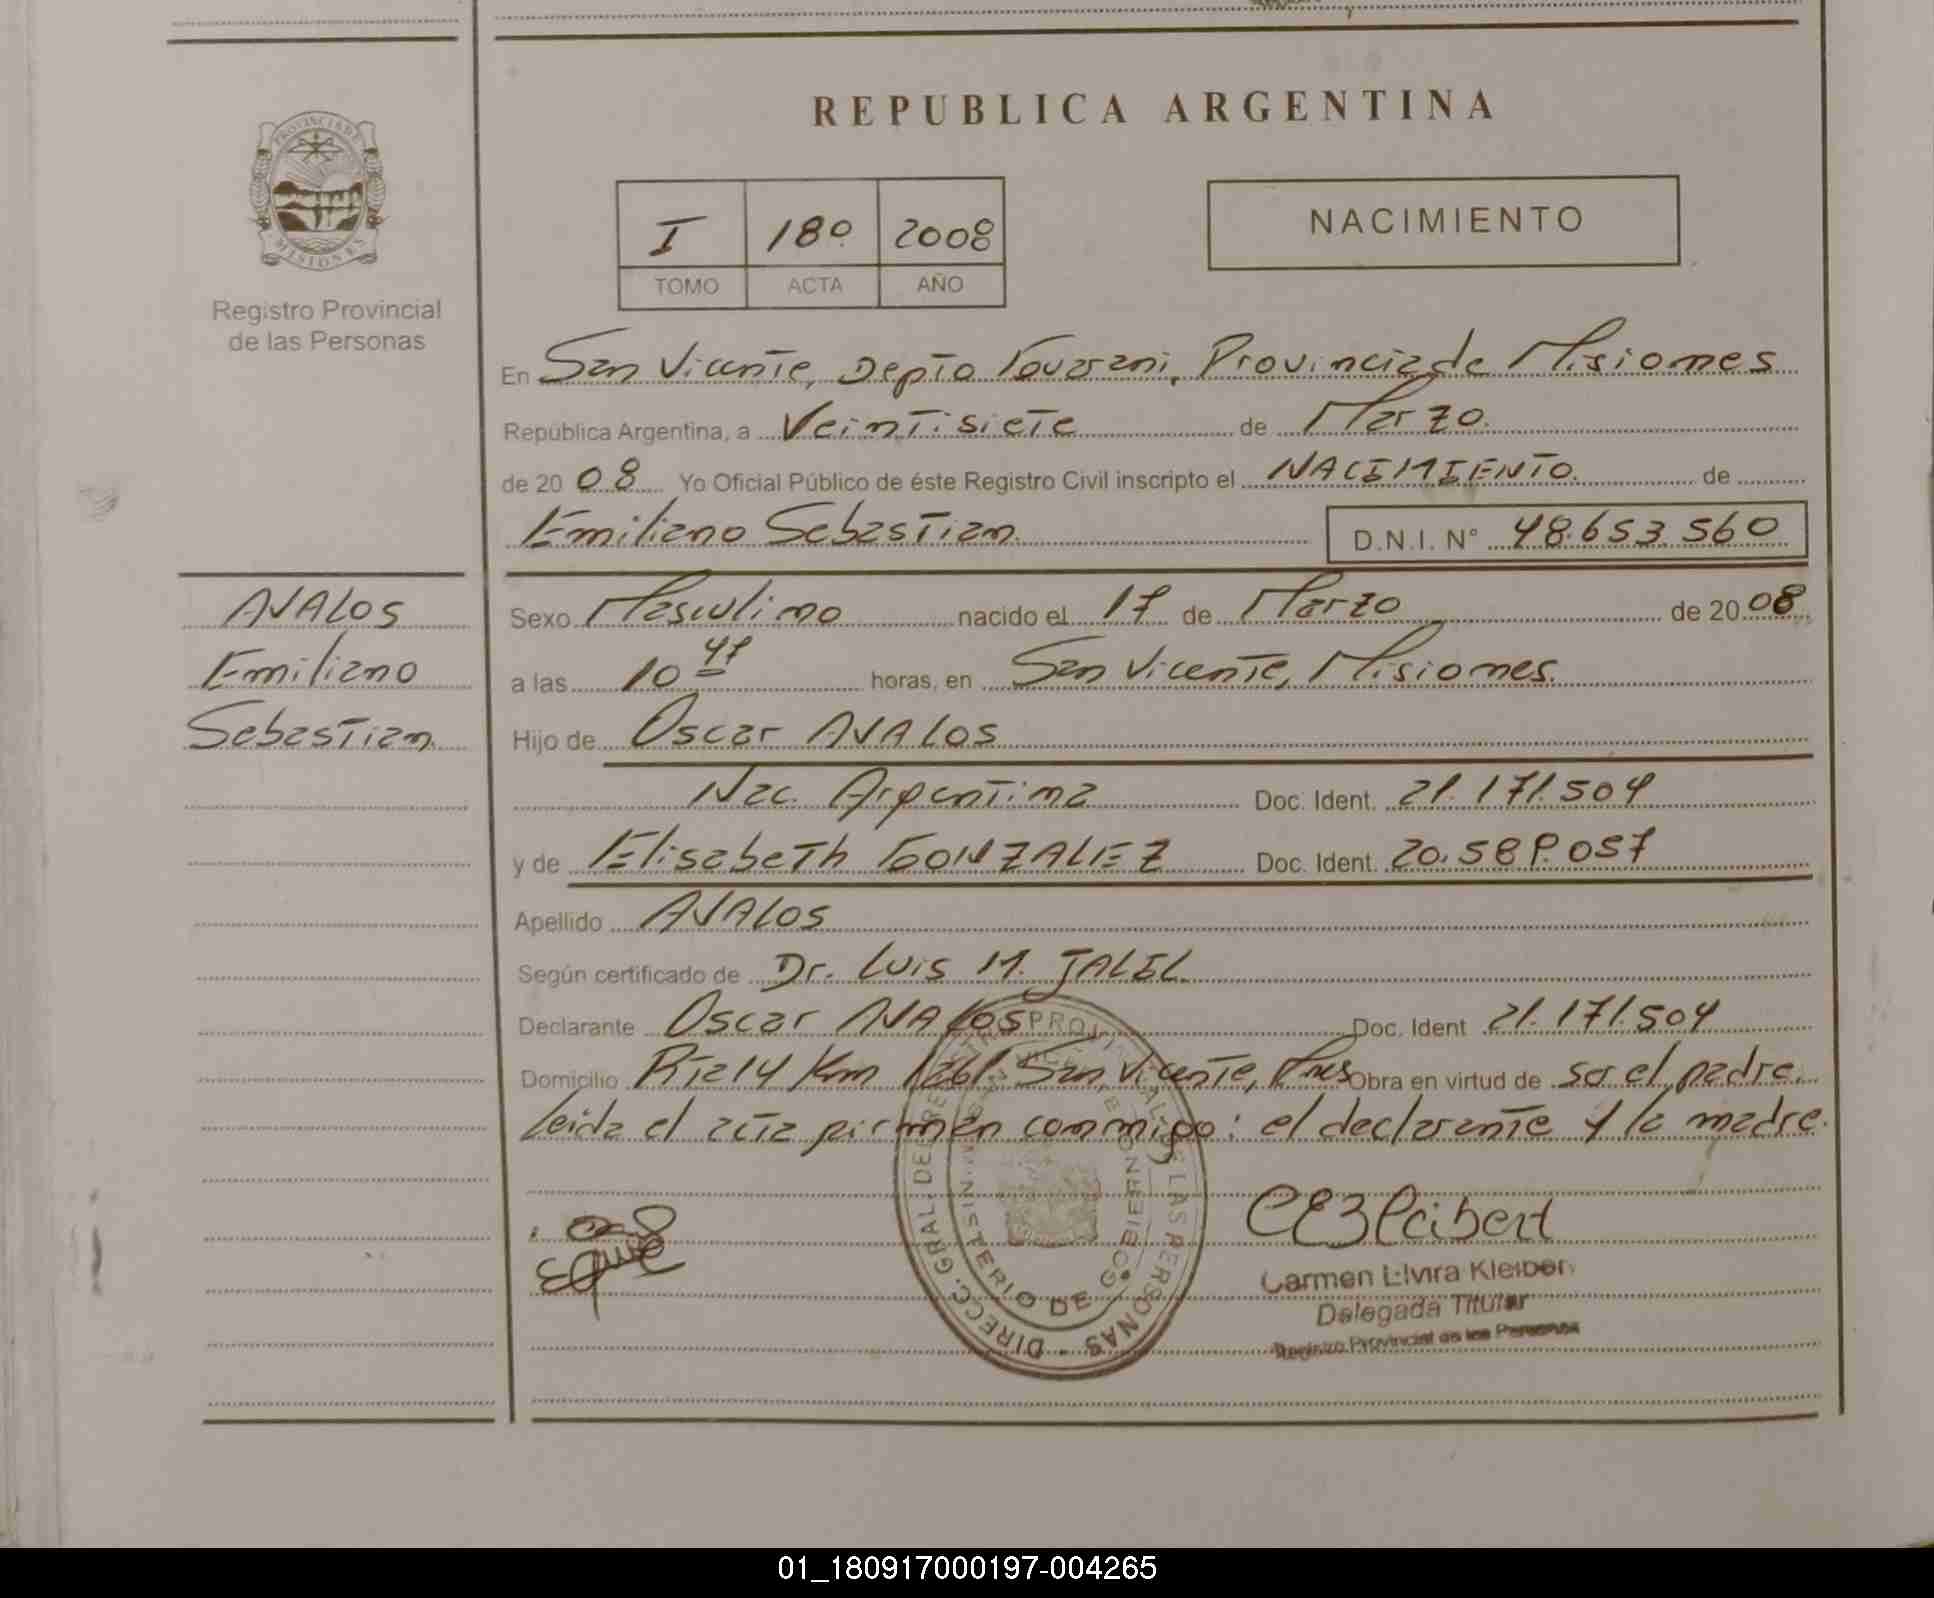 PROVINCIA DE
MISIONES
Registro Provincial
de las Personas
REPUBLICA ARGENTINA
I 180 2008
TOMO ACTA AÑO
NACIMIENTO
En San Vicente, Depto Guarani, Provincia de Misiones
República Argentina, a Veintisiete de Marzo.
de 2008 Yo Oficial Público de éste Registro Civil inscripto el NACIMIENTO. de
Emiliano Sebastian D.N.I. N° 48.653.560
AVALOS
Emiliano
Sebastian
Sexo Masculino nacido el 17 de Marzo de 2008
a las 10 47 horas, en San Vicente, Misiones.
Hijo de Oscar AVALOS
Nac. Argentina Doc. Ident. 21.171.504
y de Elisabeth GONZALEZ Doc. Ident.
Apellido AVALOS
Según certificado de Dr. Luis M. JALIL
Declarante Oscar AVALOS Doc. Ident 21.171.504
Domicilio Rta 14 Km 1261 San Vicente, Mnes Obra en virtud de ser el padre.
Leida el acta firman conmigo: el declarante y la madre.
DIRECC. GRAL. DE REGISTRO PROVINCIAL DE LAS PERSONAS -
MINISTERIO DE GOBIERNO
SAN VICENTE
CEKleibert
Carmen Elvira Kleiber
Delegada Titular
Registro Provincial de las Personas
01_180917000197-004265